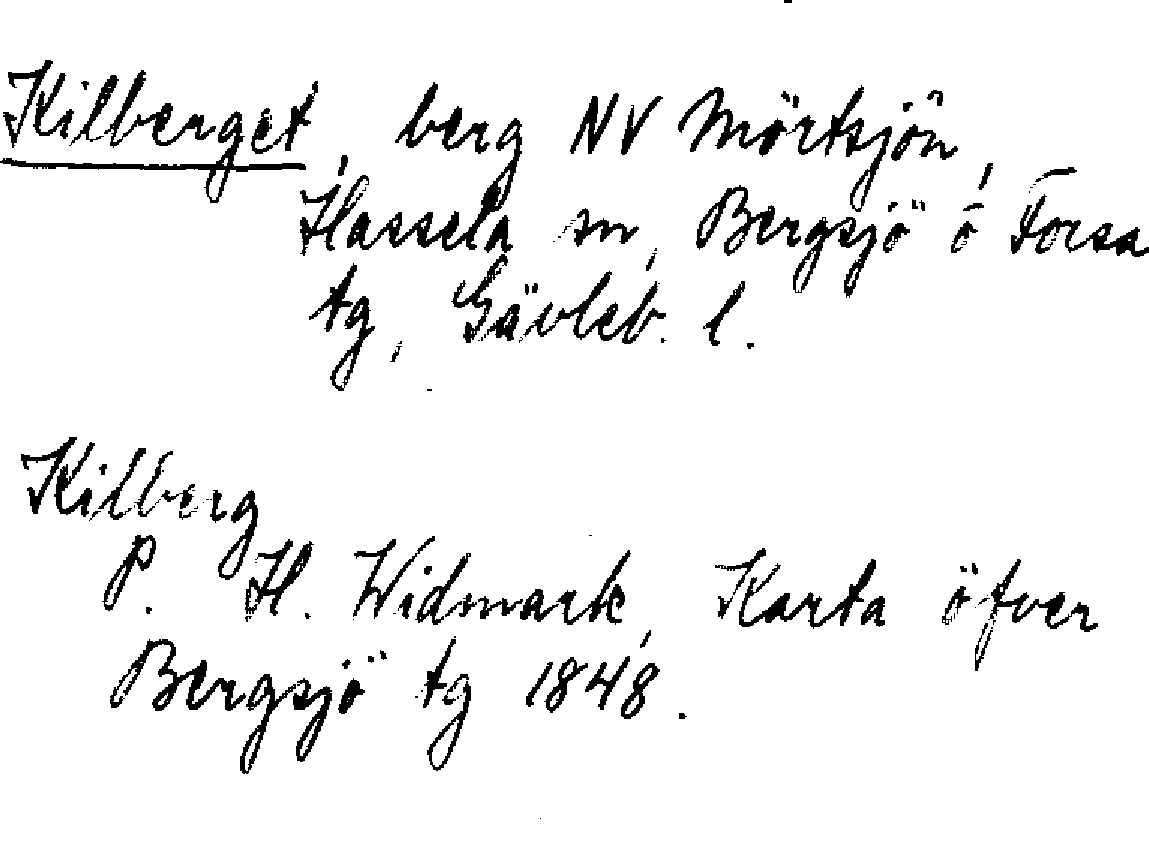 Kilberget, berg NV Mörtsjön,
Hassela sn, Bergsjö o Forsa
tg, Gävleb. l.
Kilberg
P. H. Widmark, Karta öfver
Bergsjö tg 1848.